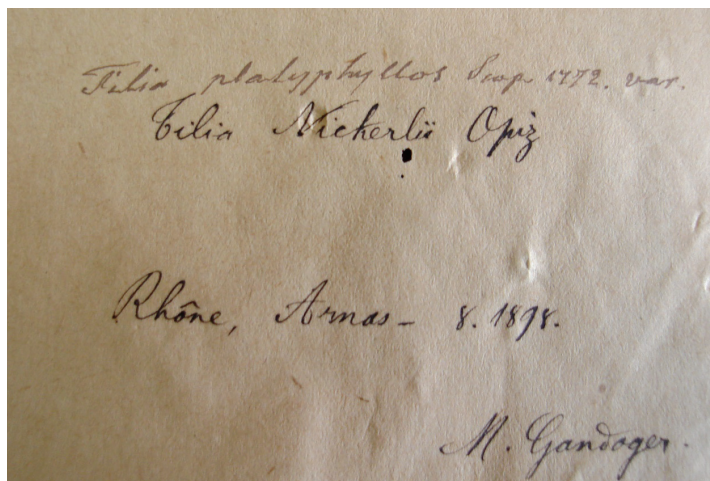 Tilia platyphyllos Scop. 1772. var.
Tilia Nickerlii Opiz
Rhône, Arnas - 8. 1898.
M. Gandoger.